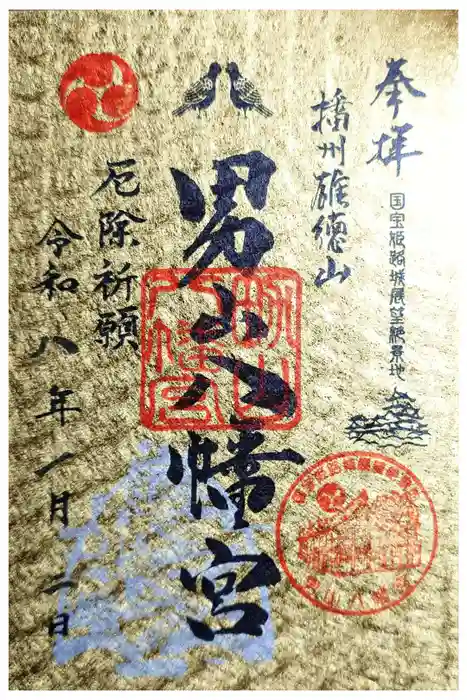 奉拝
国宝姫路城展望絶景地
播州雄徳山
男山八幡宮
厄除祈願
令和八年一月一日